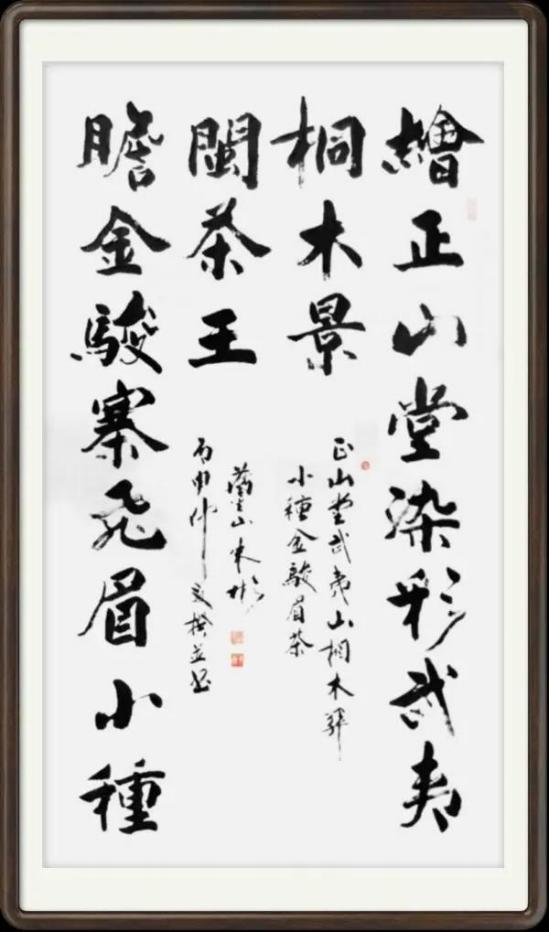 繪正山堂染彩武夷
桐木景
正山堂武夷山桐木驛
小種金駿眉茶
瞻金駿寨飛眉小種
閩茶王
丙申仲
文撰並書
山東彬